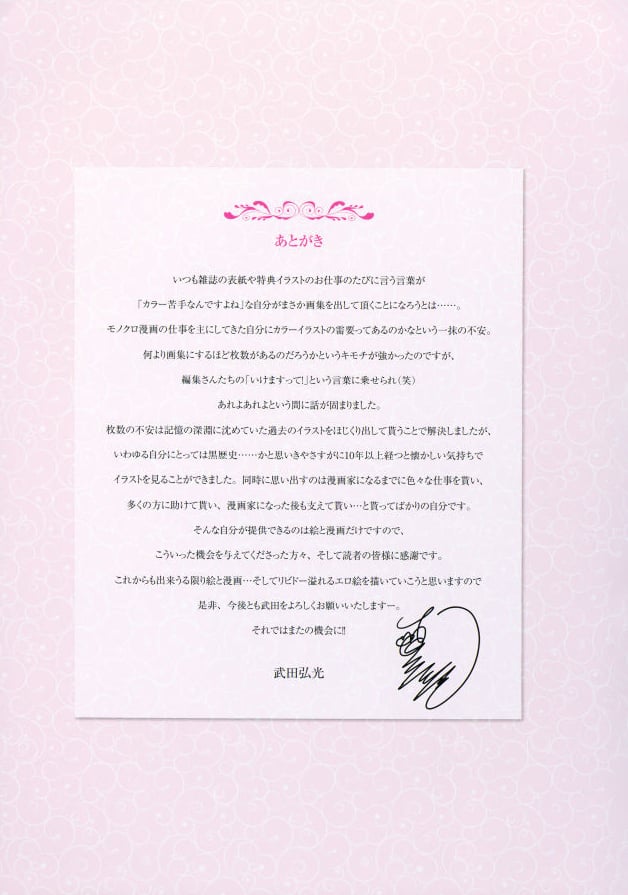 あとがき
いつも雑誌の表紙や特典イラストのお仕事のたびに言う言葉が
「カラー苦手なんですよね」な自分がまさか画集を出して頂くことになろうとは……。
モノクロ漫画の仕事を主にしてきた自分にカラーイラストの需要ってあるのかなという一抹の不安。
何より画集にするほど枚数があるのだろうかというキモチが強かったのですが、
編集さんたちの「いけますって!」という言葉に乗せられ(笑)
あれよあれよという間に話が固まりました。
枚数の不安は記憶の深淵に沈めていた過去のイラストをほじくり出して貰うことで解決しましたが、
いわゆる自分にとっては黒歴史……かと思いきやさすがに10年以上経つと懐かしい気持ちで
イラストを見ることができました。同時に思い出すのは漫画家になるまでに色々な仕事を貰い、
多くの方に助けて貰い、漫画家になった後も支えて貰い…と貰ってばかりの自分です。
そんな自分が提供できるのは絵と漫画だけですので、
こういった機会を与えてくださった方々、そして読者の皆様に感謝です。
これからも出来うる限り絵と漫画…そしてリビドー溢れるエロ絵を描いていこうと思いますので
是非、今後とも武田をよろしくお願いいたしますー。
それではまたの機会に!!
武田弘光